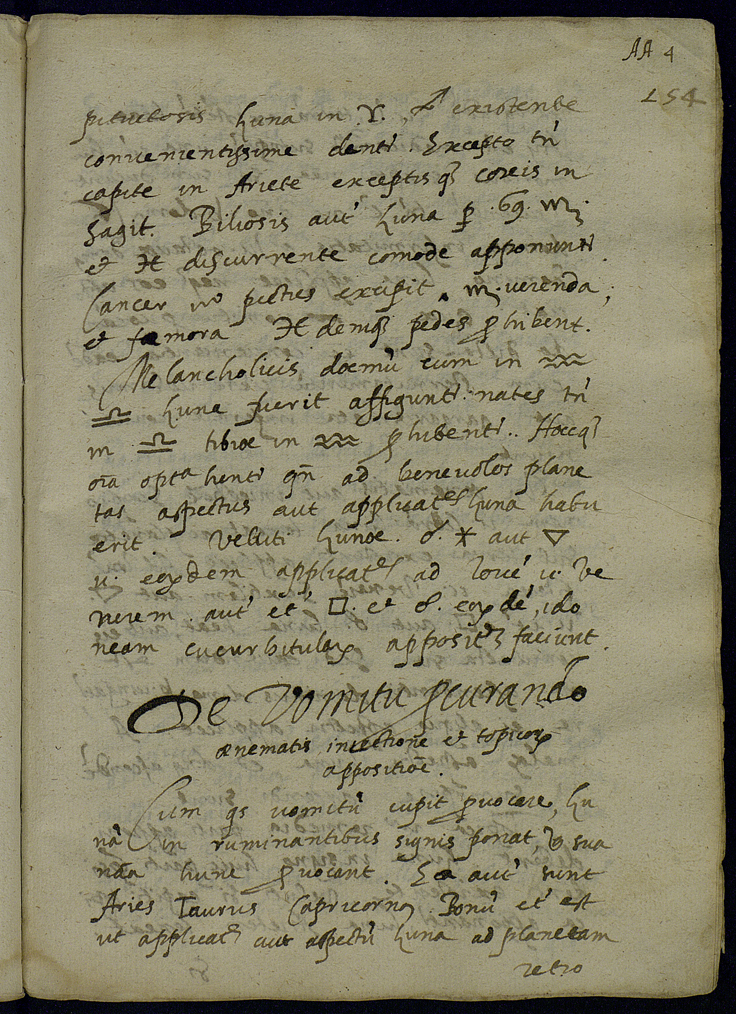 AA 4
154
pituitosis Luna in ♈. ♐ existente
convenientissime dentr. Excepto tń
capite in Ariete exceptisq coxeis in
Sagit. Biliosis aut́ Luna ꝑ ♋. ♏.
et ♓ discurrente comode apponunt.
Cancer v° pectus excipit, ♏ verenda,
et fæmora ♓ demq pedes ꝓhibent.
Melancholicis doemù cum in ♒
♎ Lune fuerit affiguntr nates tń
in ♎ tibiæ in ♒ ꝓhibentr. Hocq
oīa optᵃ hentr qn̄ ad benevolos plane
tas aspectus aut applicat Luna habu
erit. Veluti Lunæ ☌ ⚹ aut ▽
u. eoꝝdem applicat ad Iovē u. Ve
nerem. aut́ et́ □. et ☍ eoꝝdē, ido
neam cucurbitulaꝝ apposit faciunt.
De Vomitu ꝓcurando
ænematis iniectione et topicoꝝ
appositiōe.
Cum qs vomitū cupit ꝓvocare, Lu
nā in ruminantibus signis ponat, sua
nāa hunc ꝓvocant. Ea aut́ sunt
Aries Taurus Capricorn9 Bonū et́ est
ut applicat aut aspectū Luna ad planetam
retro